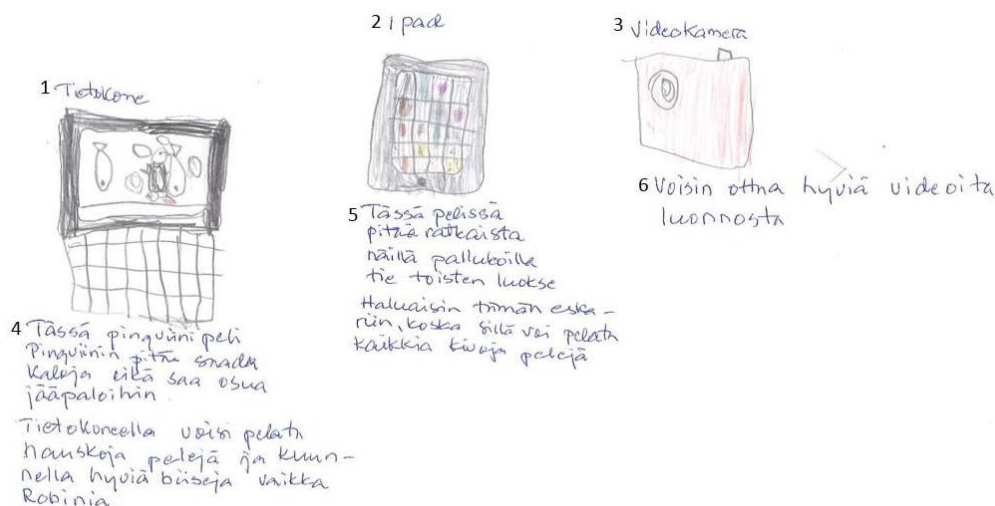 1 Tietokone
2 Ipad
3 Videokamera
4 Tässä pingviini peli
Pingviinin pitää saada
kaloja eikä saa osua
jääpaloihin
Tietokoneella voisi pelata
hauskoja pelejä ja kuun-
nella hyviä biisejä vaikka
Robinia
5 Tässä pelissä
pitää ratkaista
näillä palluroilla
tie toisten luokse
Haluaisin tämän eska-
riin, koska sillä voi pelata
kaikkia kivoja pelejä
6 Voisin ottaa hyviä videoita
luonnosta